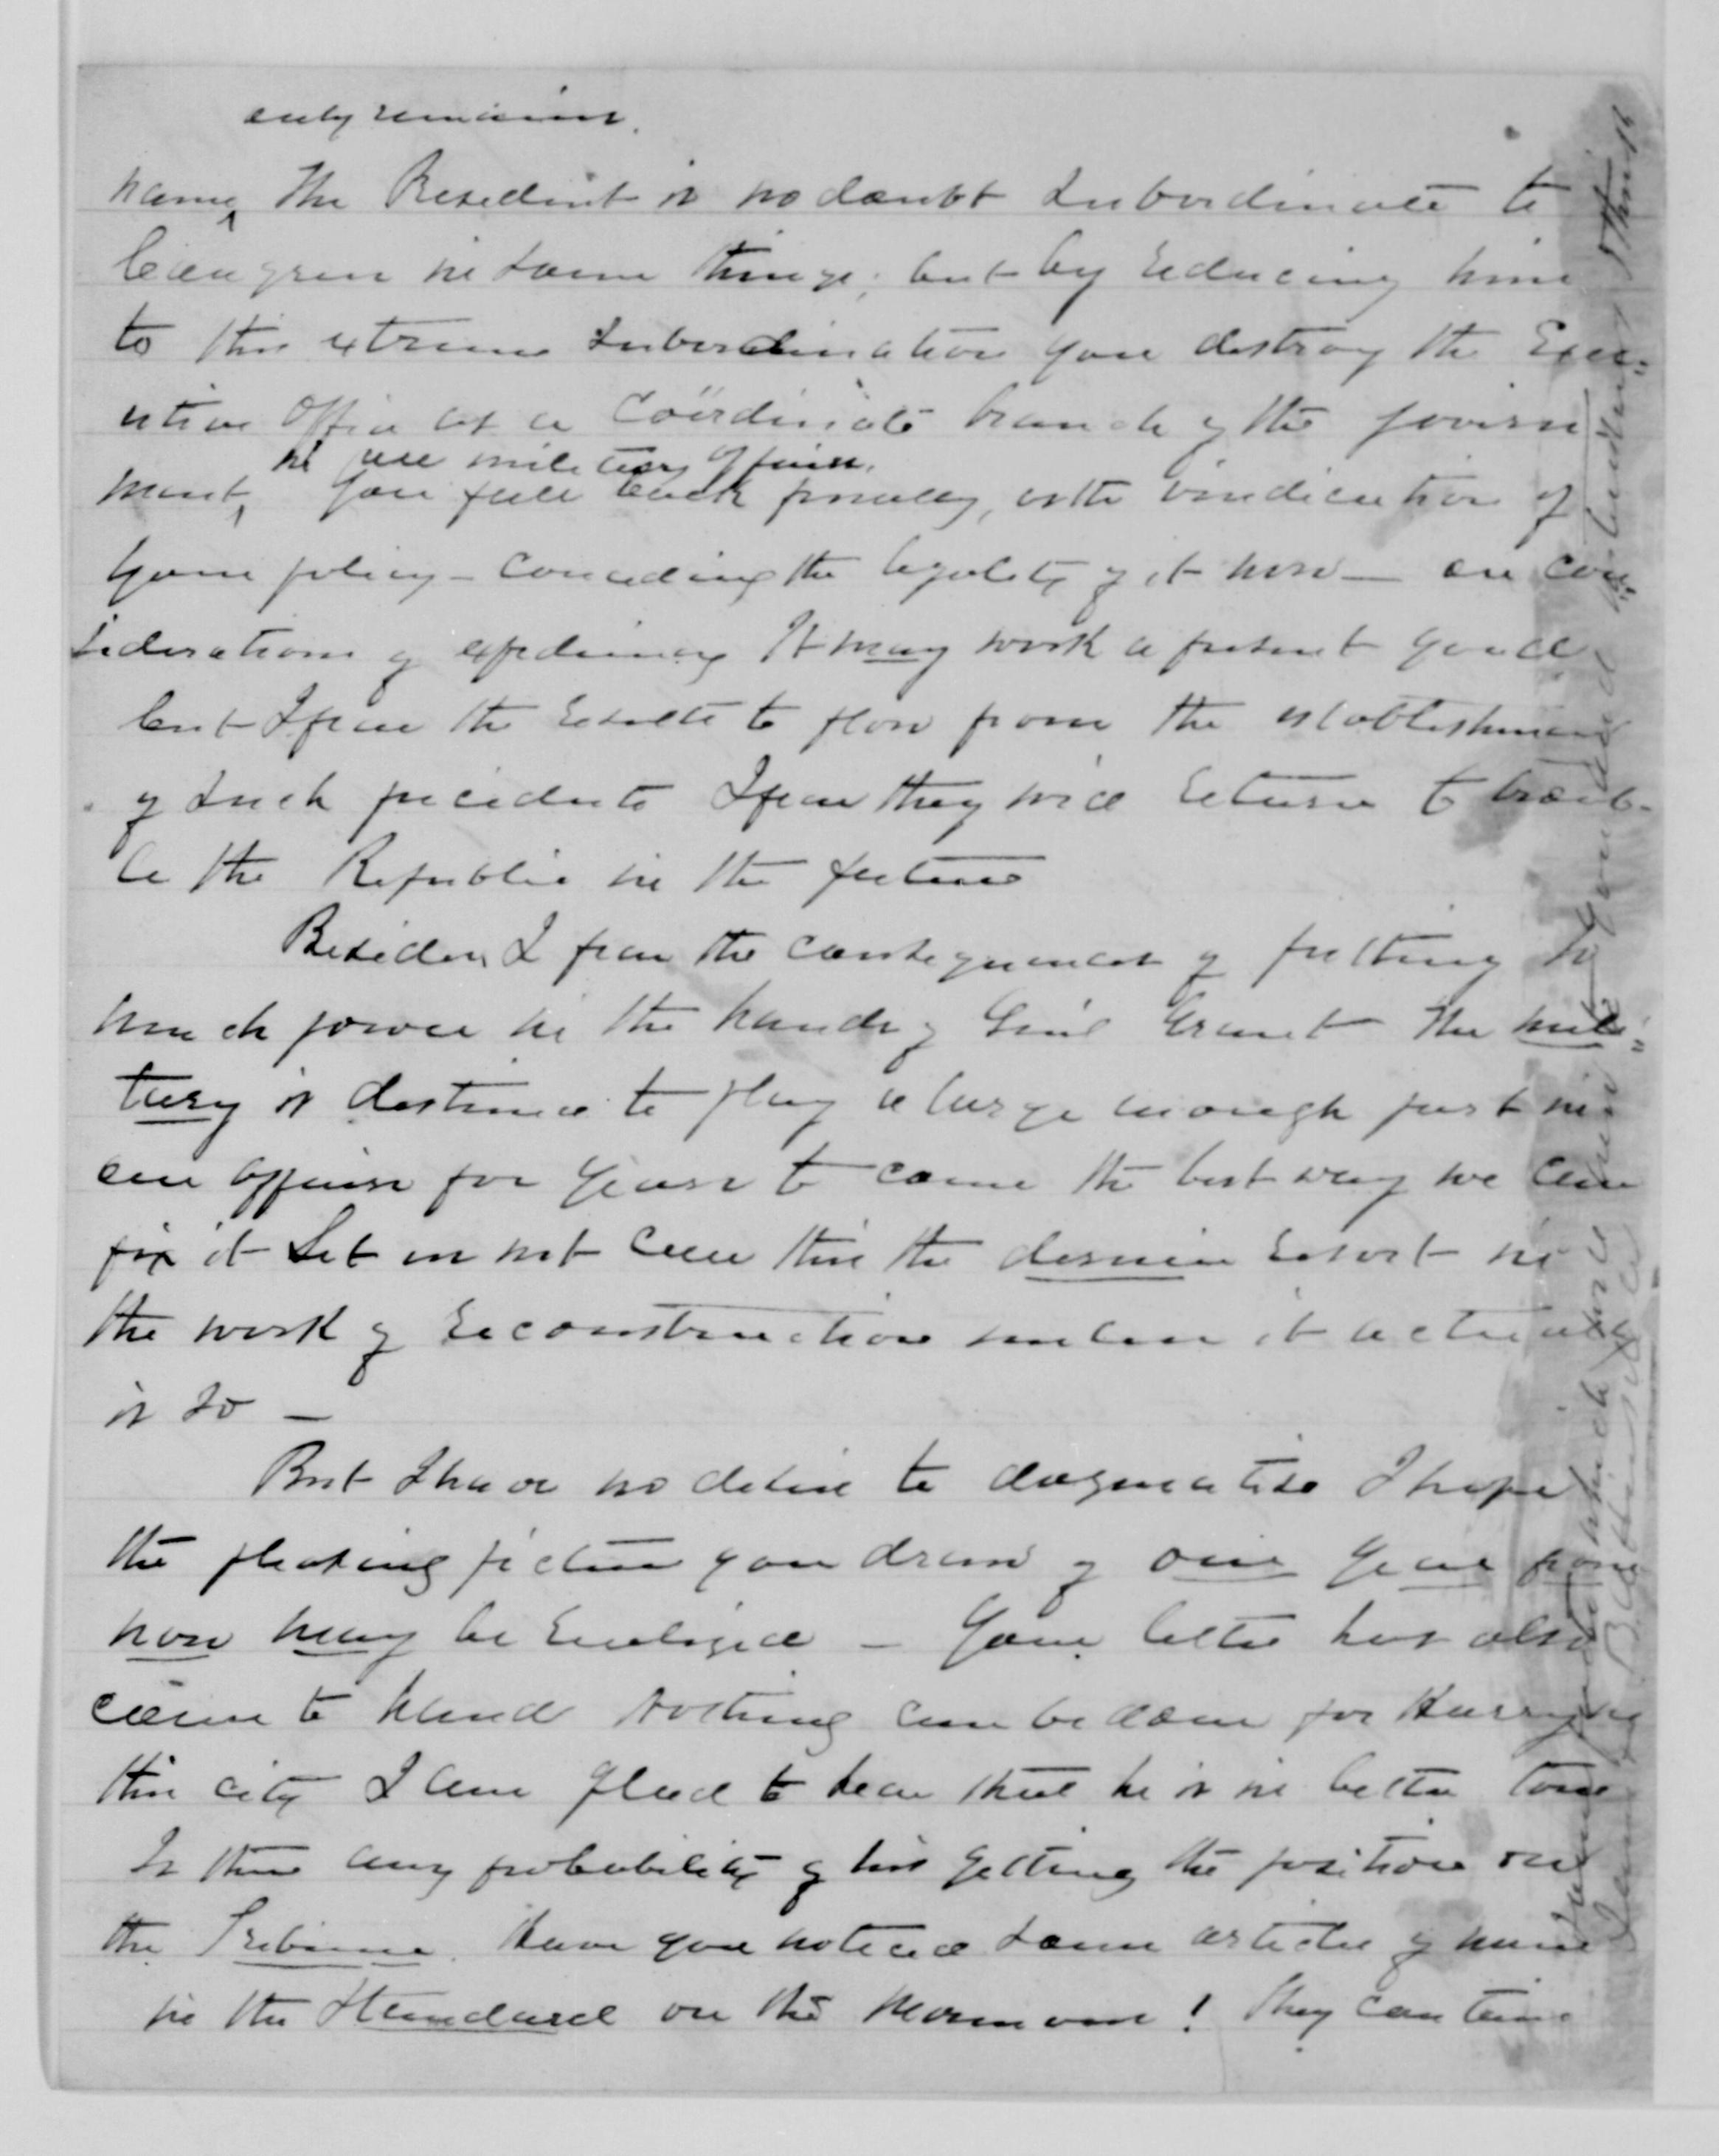 only remains.
name, The President is no doubt subordinate to
Congress in some things; but by reducing him
to this extreme subordination you destroy the Exec=
utive Office as a Coördinate branch of the govern
in all military affairs.
ment, You fall back finally, in the vindication of
your policy – conceding the legality of it now – on con=
siderations of expediency It may work a present good
but I fear the results to flow from the establishment
of such precedents I fear they will return to troub-
le the Republic in the future
Besides, I fear the consequences of putting so
much power in the hands of Genl Grant The mili=
tary is destined to play a large enough part in
our affairs for years to come the best way we can
fix it Let us not call this the dernier resort in
the work of reconstruction unless it actually
is so –
But I have no desire to dogmatise I hope
the pleasing picture you draw of one year from
now may be realized – Your letter has also
come to hand Nothing can be done for Harry in
this city I am glad to hear that he is in better tone
Is there any probability of his getting the position on
the Tribune. Have you noticed some articles of mine
in the Standard on the Mormons! They contain